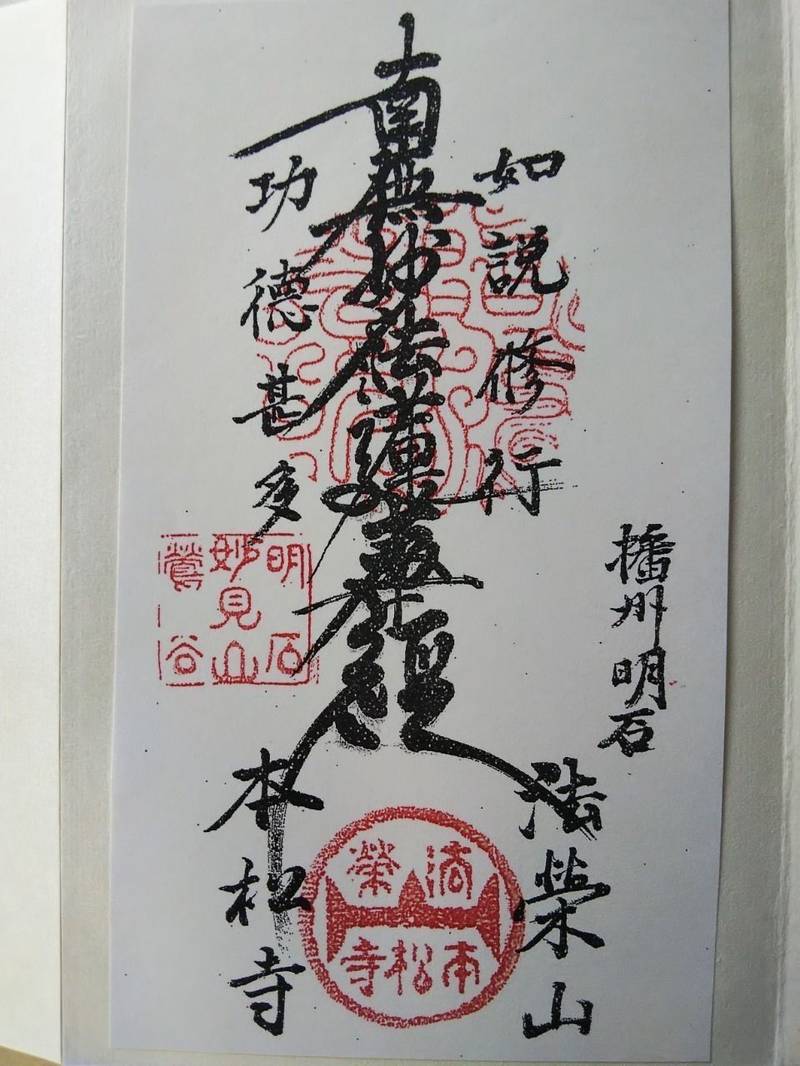 播州明石
如説修行
南無妙法蓮華経
功德甚多
法榮山
本松寺
明石
妙見山
鶯谷
法榮
本松寺